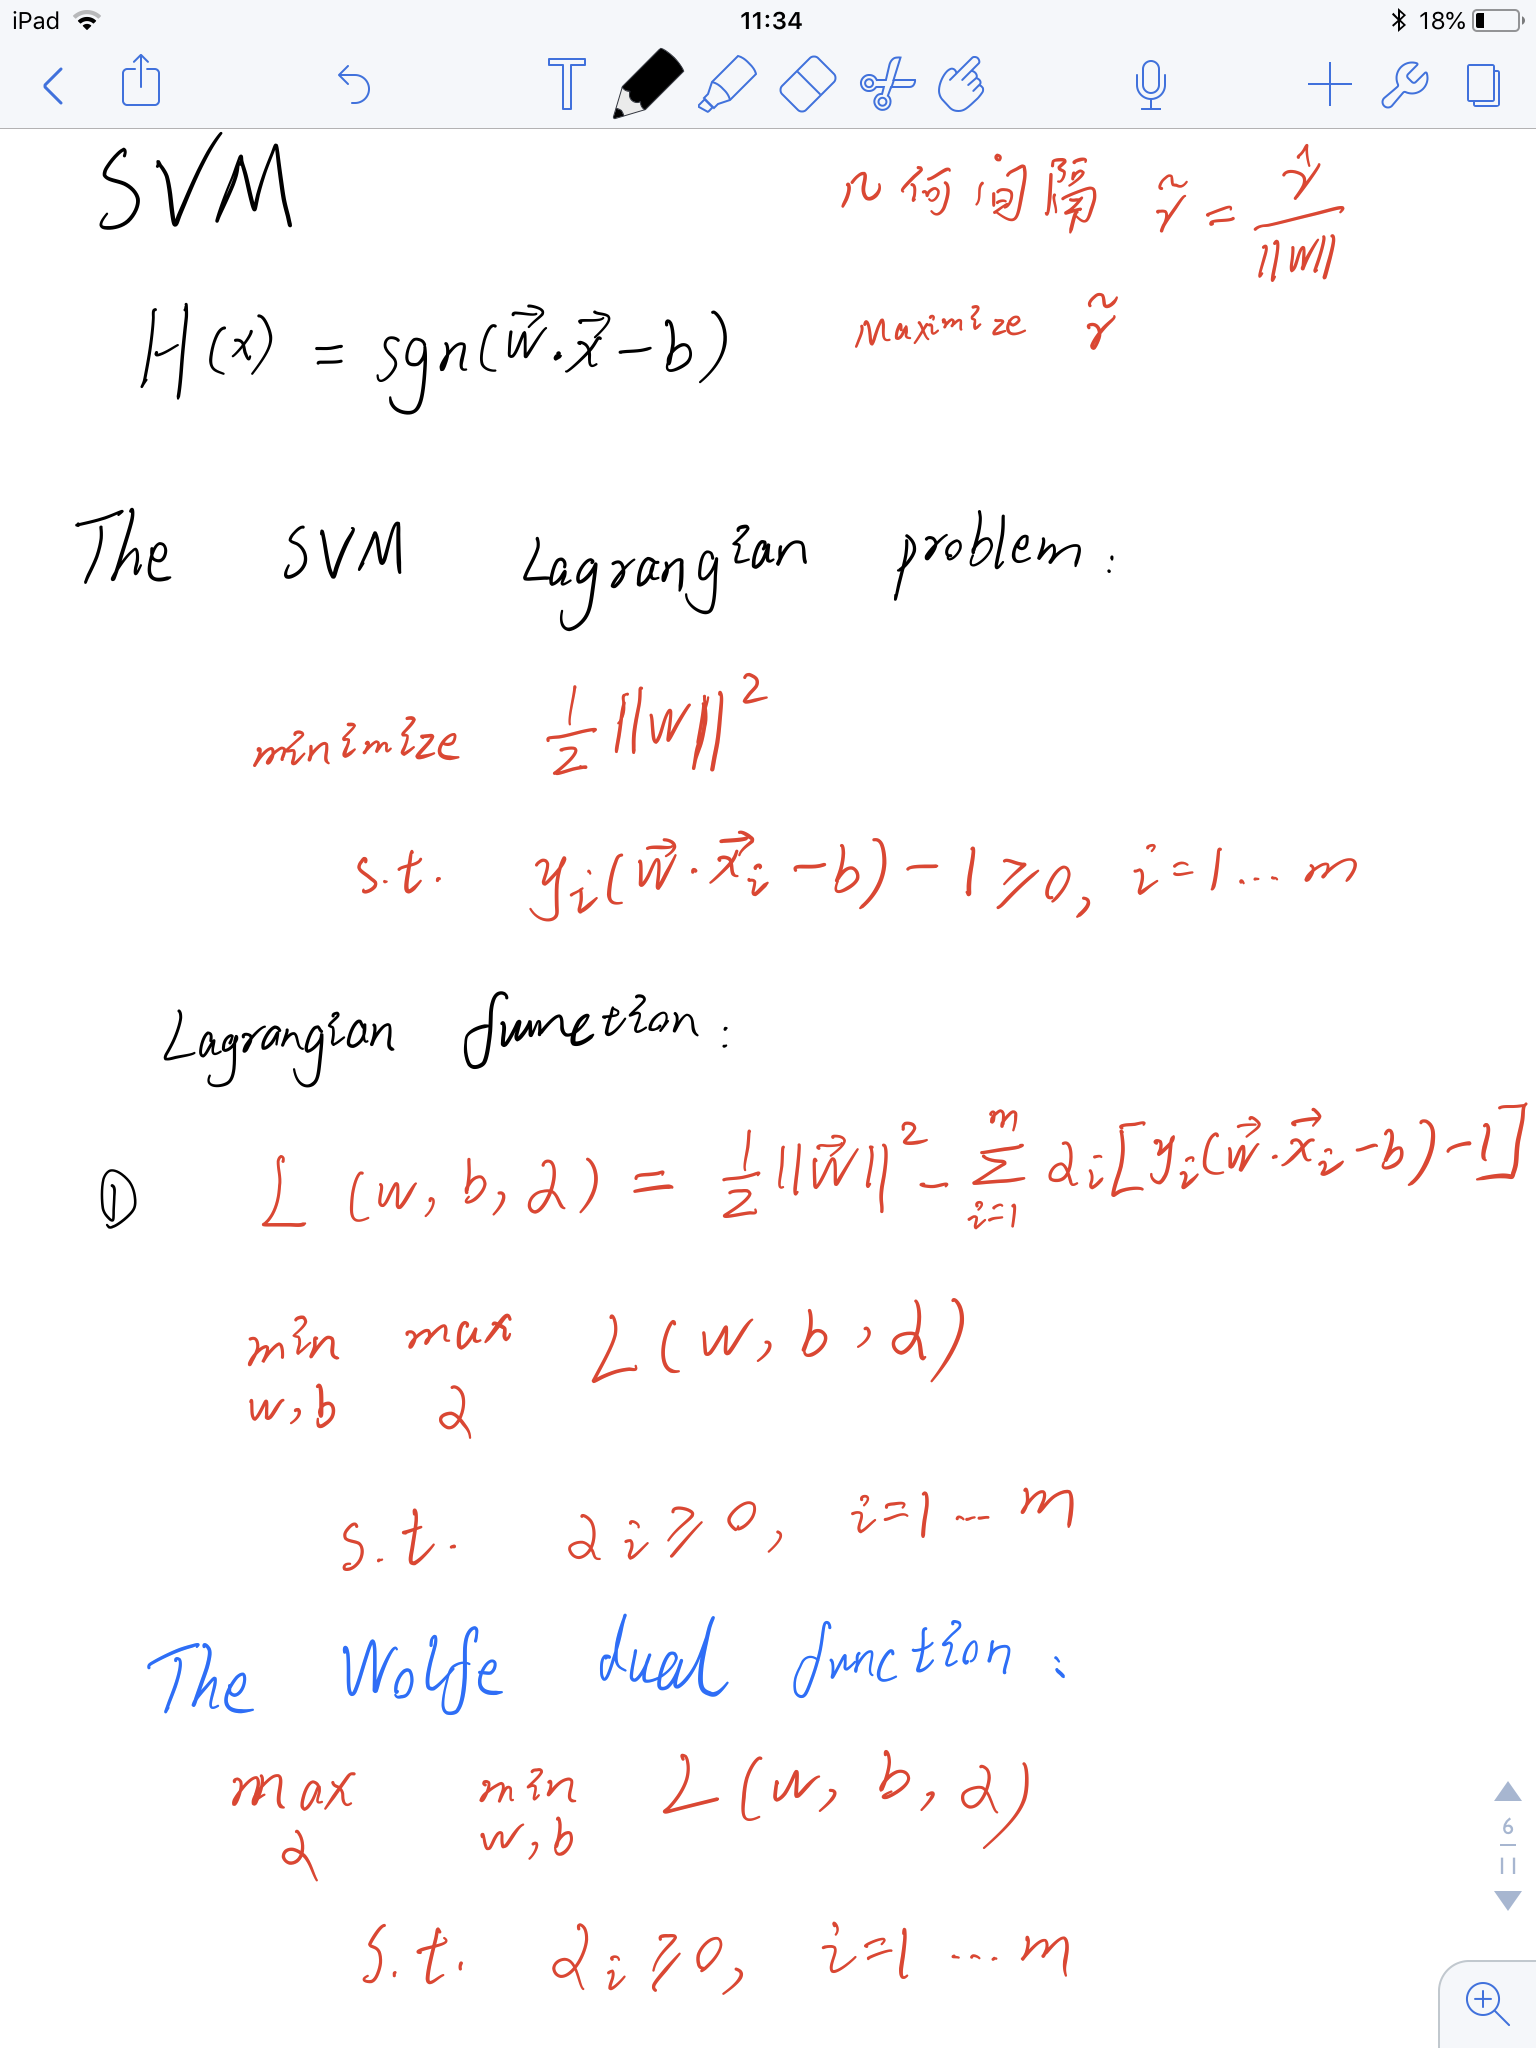 iPad 11:34 18%
SVM
几何间隔 γ̃ = γ̂ / ||W||
H(x) = sgn(w⃗·x⃗-b)
Maximize γ̃
The SVM Lagrangian problem:
minimize 1/2 ||W||²
s.t. yᵢ(w⃗·x⃗ᵢ-b)-1⩾0, i=1...m
Lagrangian function:
① L(w,b,α) = 1/2||w⃗||² - ∑ᵢ₌₁ᵐ αᵢ[yᵢ(w⃗·x⃗ᵢ-b)-1]
min max L(w,b,α)
w,b α
s.t. αᵢ⩾0, i=1...m
The Wolfe dual function:
max min L(w,b,α)
α w,b
s.t. αᵢ⩾0, i=1...m
6
11